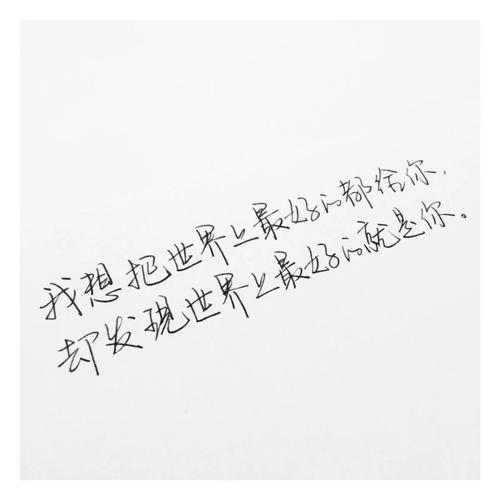 我想把世界上最好的都给你，
却发现世界上最好的就是你。